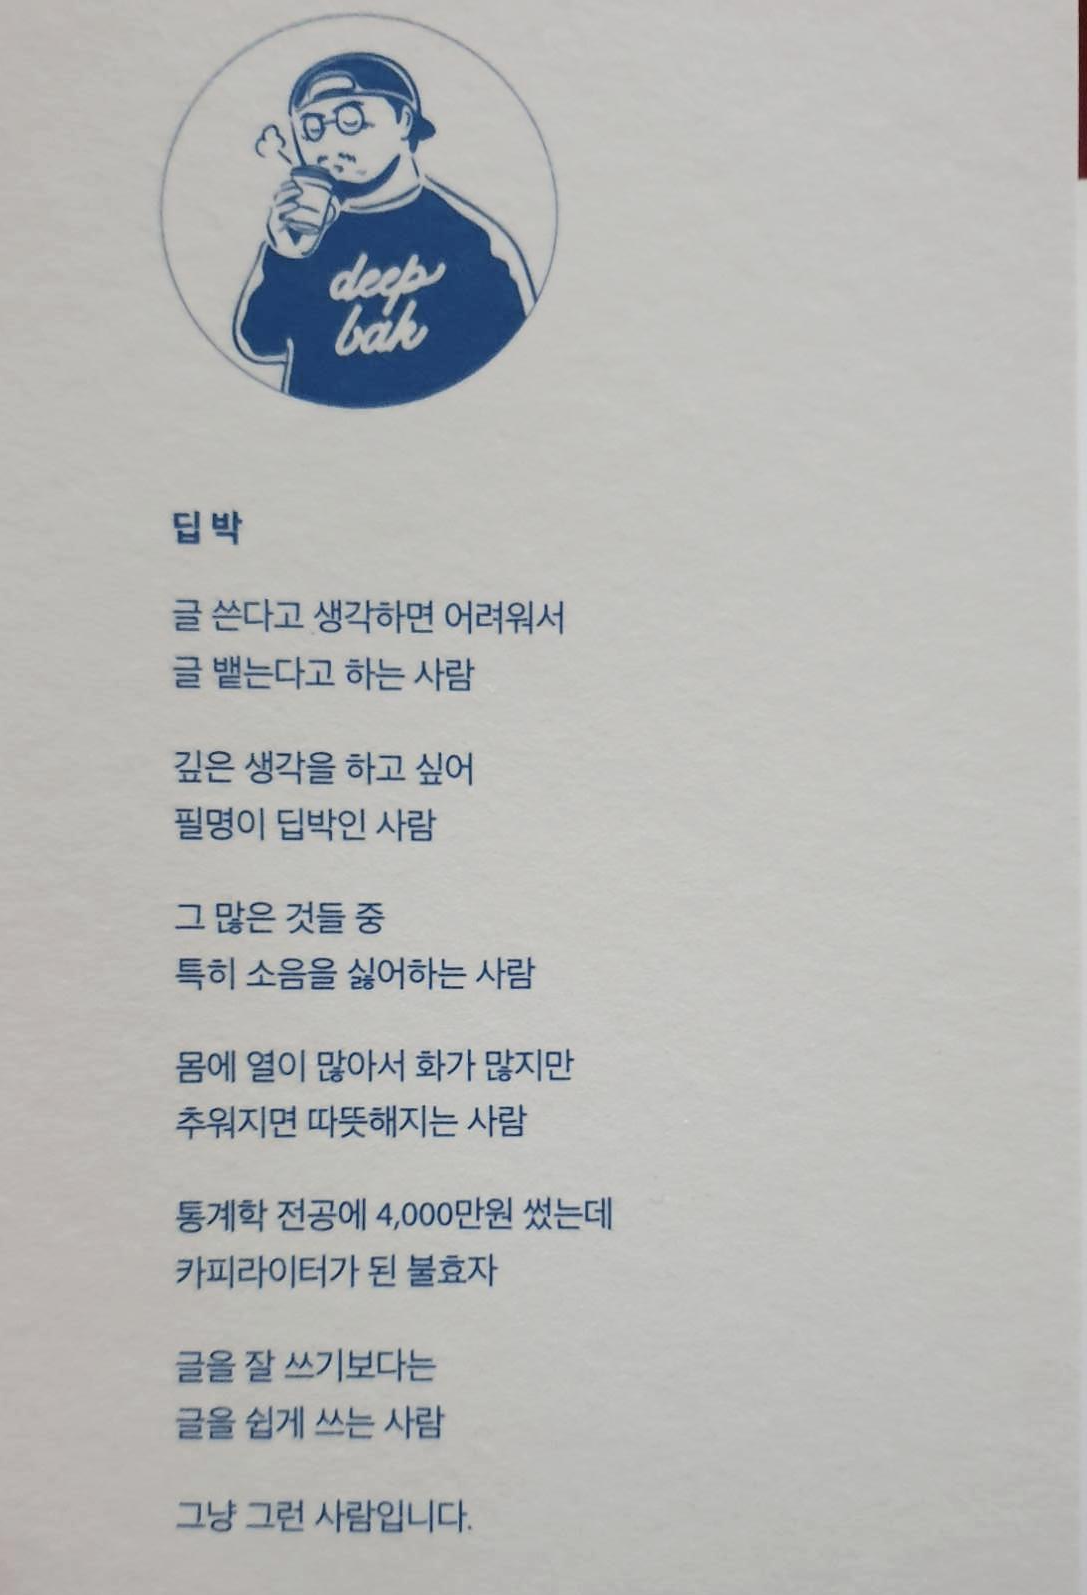 deep
bak
딥박
글 쓴다고 생각하면 어려워서
글 뱉는다고 하는 사람
깊은 생각을 하고 싶어
필명이 딥박인 사람
그 많은 것들 중
특히 소음을 싫어하는 사람
몸에 열이 많아서 화가 많지만
추워지면 따뜻해지는 사람
통계학 전공에 4,000만원 썼는데
카피라이터가 된 불효자
글을 잘 쓰기보다는
글을 쉽게 쓰는 사람
그냥 그런 사람입니다.